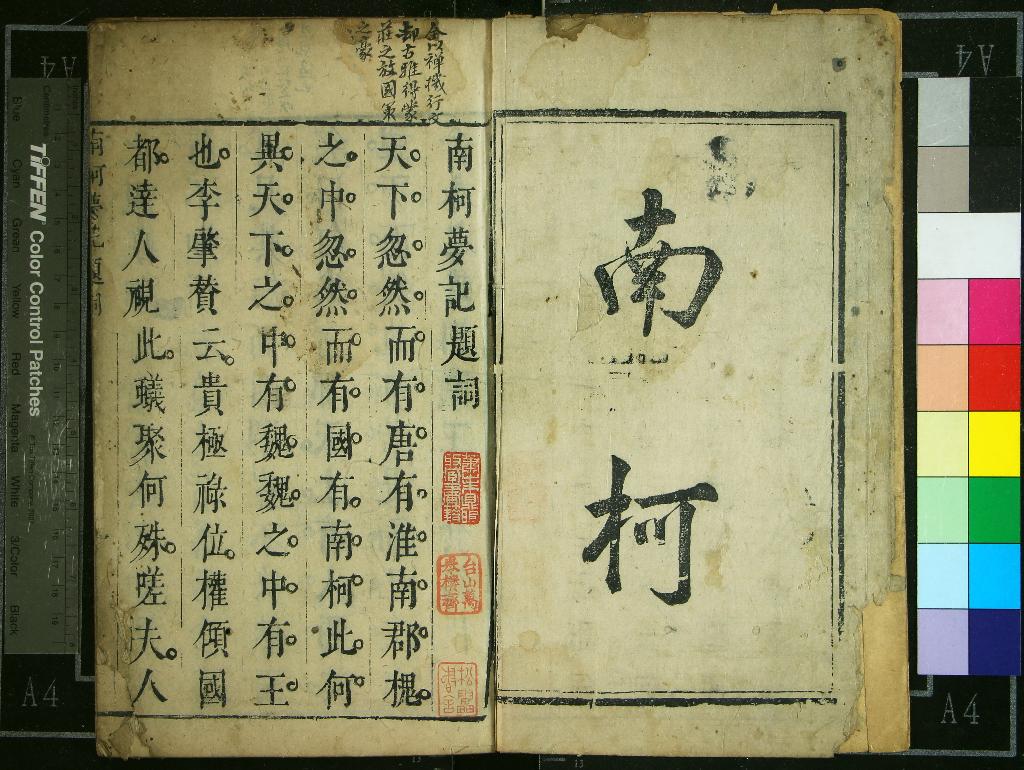 南柯
全以禪機行文
却古雅得蒙
莊之放國策
之豪
南柯夢記題詞
天下忽然而有唐有淮南郡槐
之中忽然而有國有南柯此何
異天下之中有魏魏之中有王
也李肇贊云貴極祿位權傾國
都達人視此蟻聚何殊嗟夫人
南柯夢記題詞
TIFFEN Color Control Patches
Blue Cyan Green Yellow Red Magenta White 3/Color Black
Centimetres
A4
A4
A4
A4